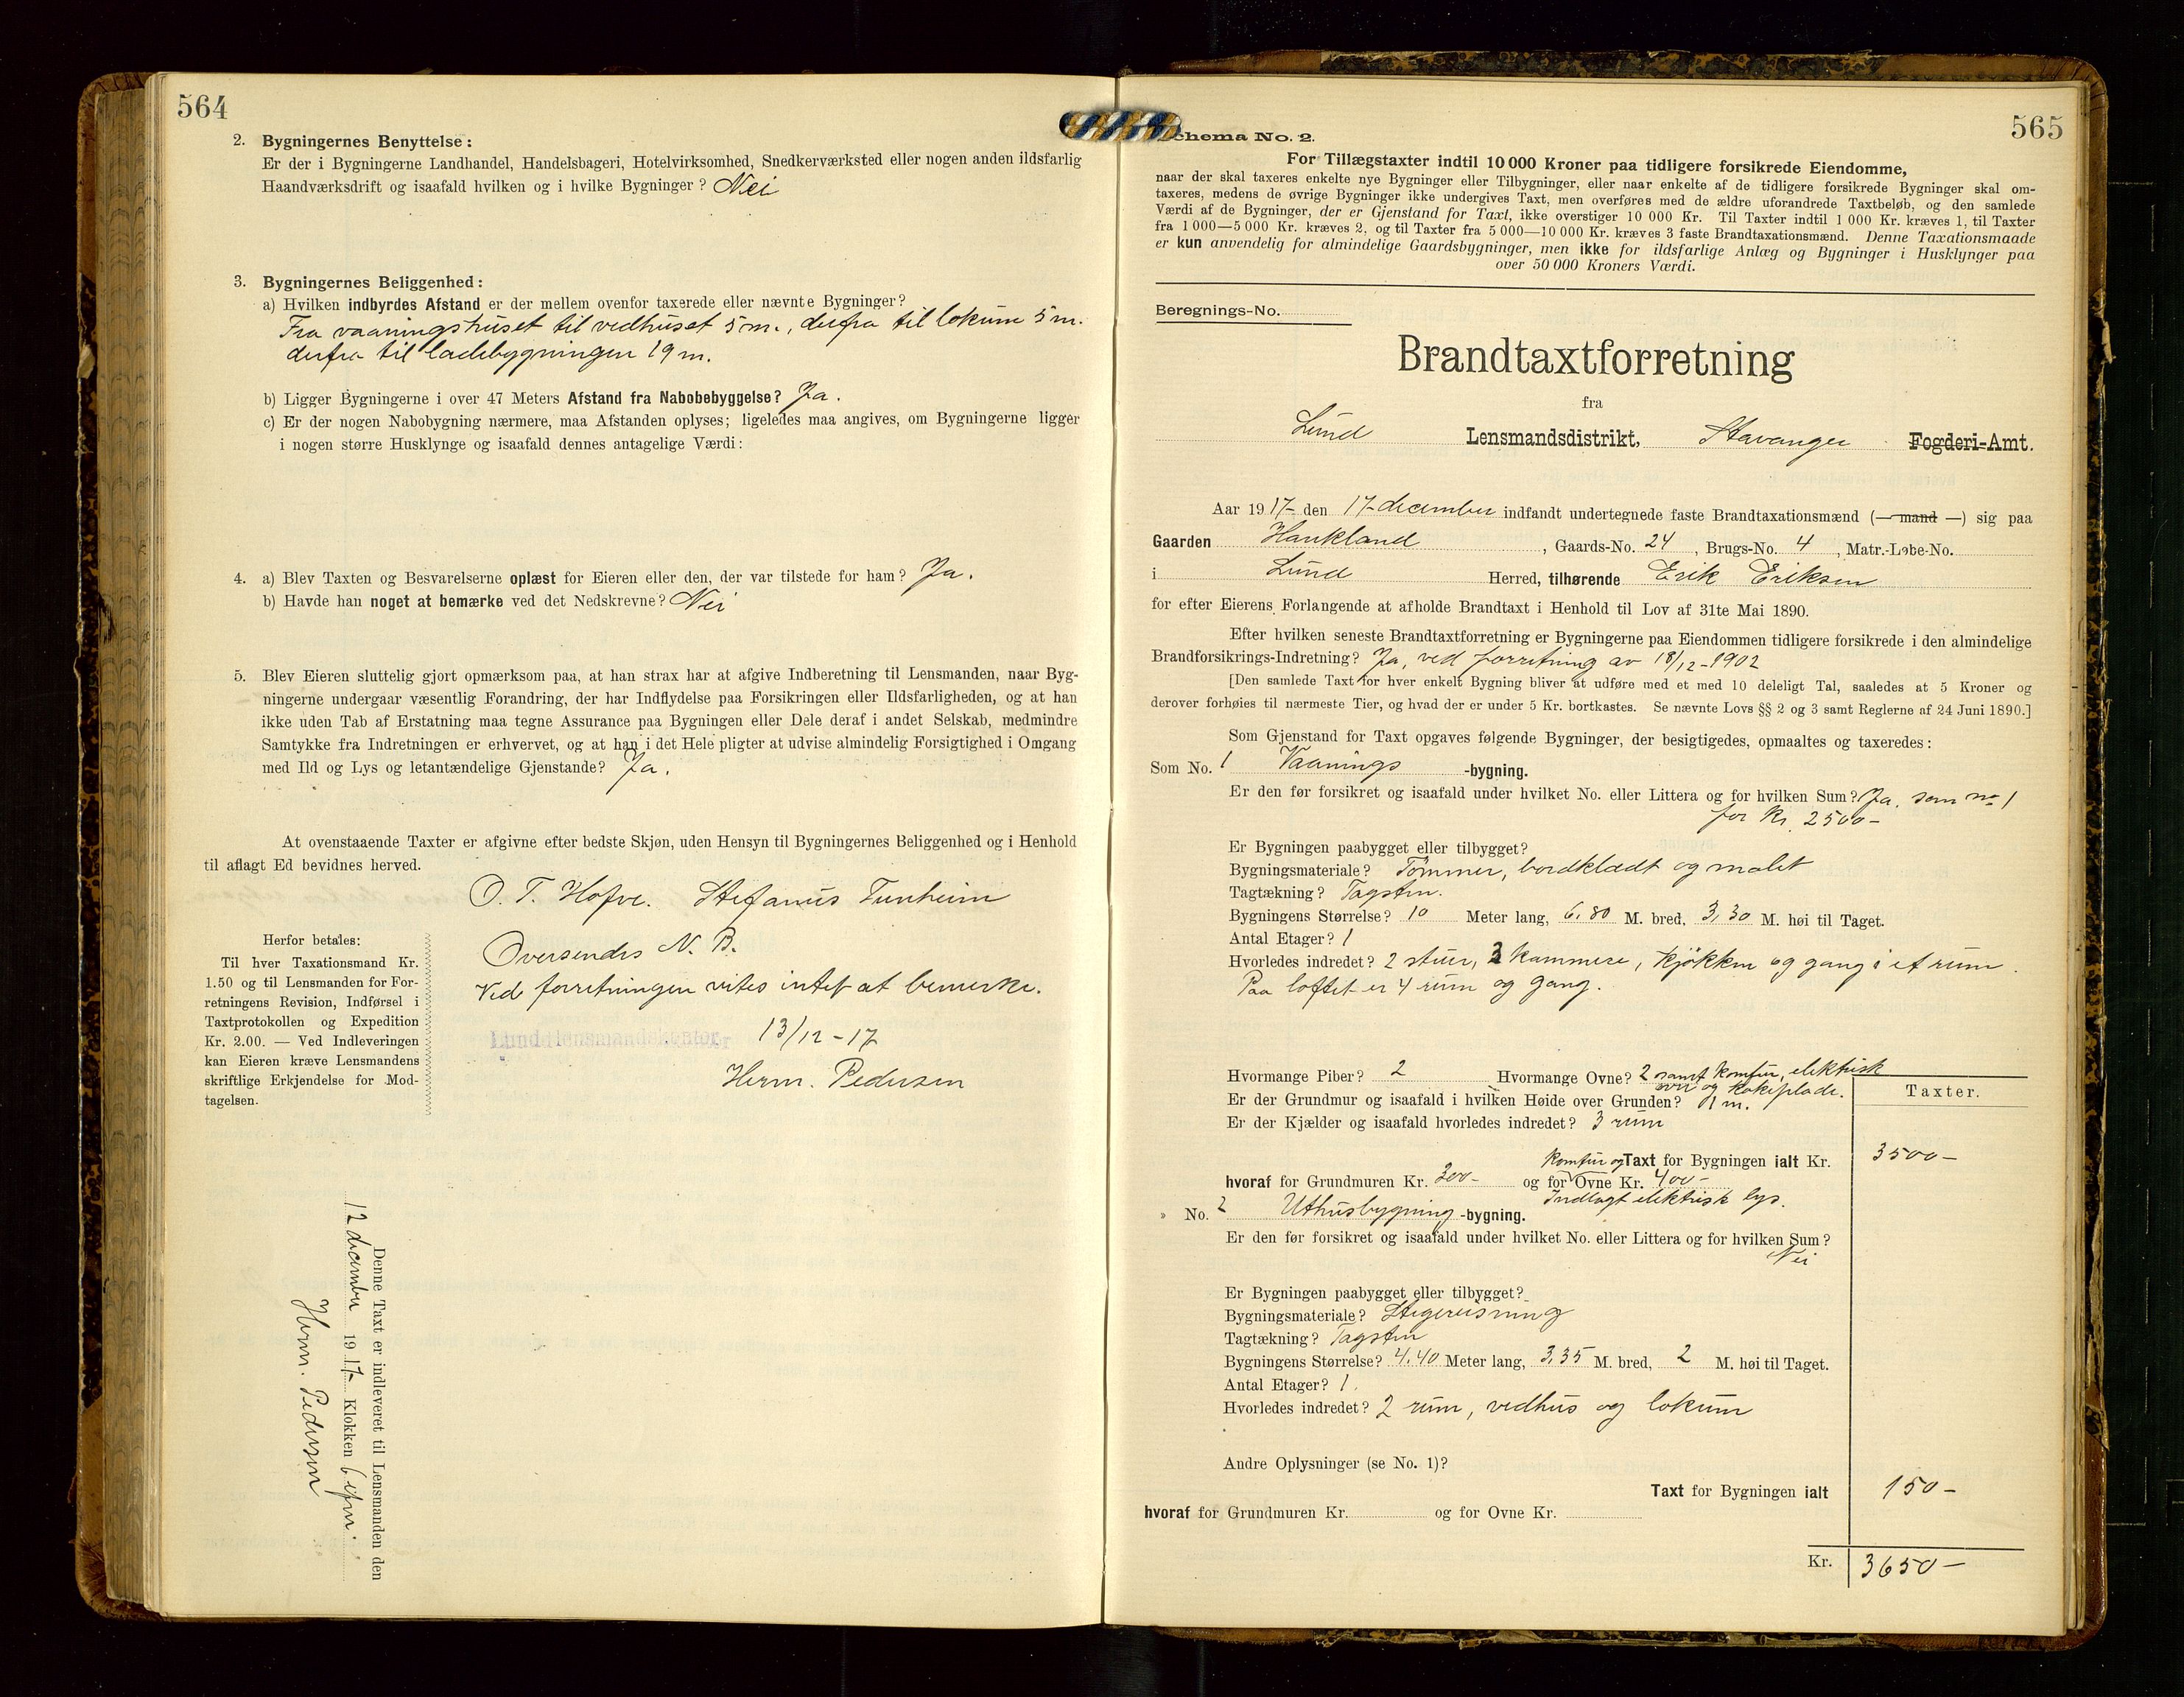 564
2. Bygningernes Benyttelse:
Er der i Bygningerne Landhandel, Handelsbageri, Hotelvirksomhed, Snedkerværksted eller nogen anden ildsfarlig
Haandværksdrift og isaafald hvilken og i hvilke Bygninger? Nei
3. Bygningernes Beliggenhed:
a) Hvilken indbyrdes Afstand er der mellem ovenfor taxerede eller nævnte Bygninger?
Fra vaaningshuset til vedhuset 5 m., derfra til lokum 5 m.
derfra til ladebygningen 19 m.
b) Ligger Bygningerne i over 47 Meters Afstand fra Nabobebyggelse? Ja.
c) Er der nogen Nabobygning nærmere, maa Afstanden oplyses; ligeledes maa angives, om Bygningerne ligger
i nogen større Husklynge og isaafald dennes antagelige Værdi:
4. a) Blev Taxten og Besvarelserne oplæst for Eieren eller den, der var tilstede for ham? Ja.
b) Havde han noget at bemærke ved det Nedskrevne? Nei
5. Blev Eieren sluttelig gjort opmærksom paa, at han strax har at afgive Indberetning til Lensmanden, naar Byg-
ningerne undergaar væsentlig Forandring, der har Indflydelse paa Forsikringen eller Ildsfarligheden, og at han
ikke uden Tab af Erstatning maa tegne Assurance paa Bygningen eller Dele deraf i andet Selskab, medmindre
Samtykke fra Indretningen er erhvervet, og at han i det Hele pligter at udvise almindelig Forsigtighed i Omgang
med Ild og Lys og letantændelige Gjenstande? Ja.
At ovenstaaende Taxter er afgivne efter bedste Skjøn, uden Hensyn til Bygningernes Beliggenhed og i Henhold
til aflagt Ed bevidnes herved.
O. T. Hofve. Stefanus Tunheim
Oversendes N. B.
Ved forretningen vites intet at bemerke.
Lund lensmandskontor
13/12-17
Herm. Pedersen
Herfor betales:
Til hver Taxationsmand Kr.
1.50 og til Lensmanden for For-
retningens Revision, Indførsel i
Taxtprotokollen og Expedition
Kr. 2.00. — Ved Indleveringen
kan Eieren kræve Lensmandens
skriftlige Erkjendelse for Mod-
tagelsen.
Denne Taxt er indleveret til Lensmanden den
12 december 1917 Klokken 6 efm.
Herm. Pedersen
565
Schema No. 2.
For Tillægstaxter indtil 10 000 Kroner paa tidligere forsikrede Eiendomme,
naar der skal taxeres enkelte nye Bygninger eller Tilbygninger, eller naar enkelte af de tidligere forsikrede Bygninger skal om-
taxeres, medens de øvrige Bygninger ikke undergives Taxt, men overføres med de ældre uforandrede Taxtbeløb, og den samlede
Værdi af de Bygninger, der er Gjenstand for Taxt, ikke overstiger 10 000 Kr. Til Taxter indtil 1 000 Kr. kræves 1, til Taxter
fra 1 000—5 000 Kr. kræves 2, og til Taxter fra 5 000—10 000 Kr. kræves 3 faste Brandtaxationsmænd. Denne Taxationsmaade
er kun anvendelig for almindelige Gaardsbygninger, men ikke for ildsfarlige Anlæg og Bygninger i Husklynger paa
over 50 000 Kroners Værdi.
Beregnings-No.
Brandtaxtforretning
fra
Lund Lensmandsdistrikt, Stavanger Fogderi-Amt.
Aar 1917- den 17-december indfandt undertegnede faste Brandtaxationsmænd (— mand —) sig paa
Gaarden Haukland, Gaards-No. 24, Brugs-No. 4, Matr.-Løbe-No.
i Lund Herred, tilhørende Erik Eriksen
for efter Eierens Forlangende at afholde Brandtaxt i Henhold til Lov af 31te Mai 1890.
Efter hvilken seneste Brandtaxtforretning er Bygningerne paa Eiendommen tidligere forsikrede i den almindelige
Brandforsikrings-Indretning? Ja, ved forretning av 18/12-1902
[Den samlede Taxt for hver enkelt Bygning bliver at udføre med et med 10 deleligt Tal, saaledes at 5 Kroner og
derover forhøies til nærmeste Tier, og hvad der er under 5 Kr. bortkastes. Se nævnte Lovs §§ 2 og 3 samt Reglerne af 24 Juni 1890.]
Som Gjenstand for Taxt opgaves følgende Bygninger, der besigtigedes, opmaaltes og taxeredes:
Som No. 1 Vaanings -bygning.
Er den før forsikret og isaafald under hvilket No. eller Littera og for hvilken Sum? Ja, som no 1
for Kr. 2500-
Er Bygningen paabygget eller tilbygget?
Bygningsmateriale? Tømmer, bordklædt og malet
Tagtækning? Tagsten.
Bygningens Størrelse? 10 Meter lang, 6,80 M. bred, 3,30 M. høi til Taget.
Antal Etager? 1
Hvorledes indredet? 2 stuer, 2 kammere, kjøkken og gang i et rum.
Paa loftet er 4 rum og gang.
Hvormange Piber? 2 Hvormange Ovne? 2 samt komfur, elektrisk
ovn og kokeplade.
Er der Grundmur og isaafald i hvilken Høide over Grunden? 1 m.
Taxter.
Er der Kjælder og isaafald hvorledes indredet? 3 rum
komfur og Taxt for Bygningen ialt Kr. 3500-
hvoraf for Grundmuren Kr. 300- og for Ovne Kr. 400-
Indlagt elektrisk lys.
» No. 2 Uthusbygning -bygning.
Er den før forsikret og isaafald under hvilket No. eller Littera og for hvilken Sum?
Nei
Er Bygningen paabygget eller tilbygget?
Bygningsmateriale? Stegereisning
Tagtækning? Tagsten
Bygningens Størrelse? 4,40 Meter lang, 3,35 M. bred, 2 M. høi til Taget.
Antal Etager? 1.
Hvorledes indredet? 2 rum, vedhus og lokum
Andre Oplysninger (se No. 1)?
Taxt for Bygningen ialt 150-
hvoraf for Grundmuren Kr. og for Ovne Kr.
Kr. 3650-